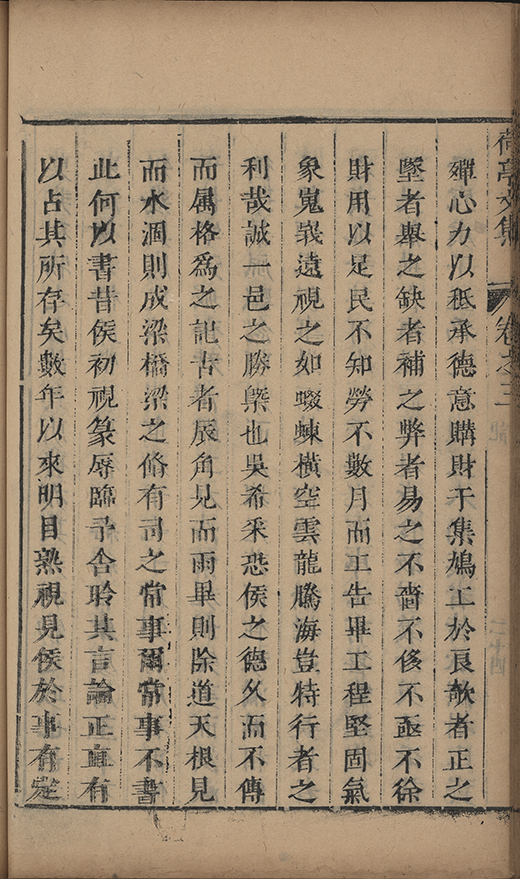 荷亭文集 卷之三 記 二十四
殫心力以秪承德意購財于集鳩工於良欹者正之
墜者舉之缺者補之弊者易之不嗇不侈不亟不徐
財用以足民不知勞不數月而工告畢工程堅固氣
象嵬嶪遠視之如蝃蝀橫空雲龍騰海豈特行者之
利哉誠一邑之勝槩也吳希采恐侯之德久而不傳
而属格爲之記古者辰角見而雨畢則除道天根見
而水涸則成梁橋梁之脩有司之常事爾常事不書
此何以書昔侯初視篆辱臨予舍聆其言論正直有
以占其所存矣數年以來明目熟視見侯於事有定